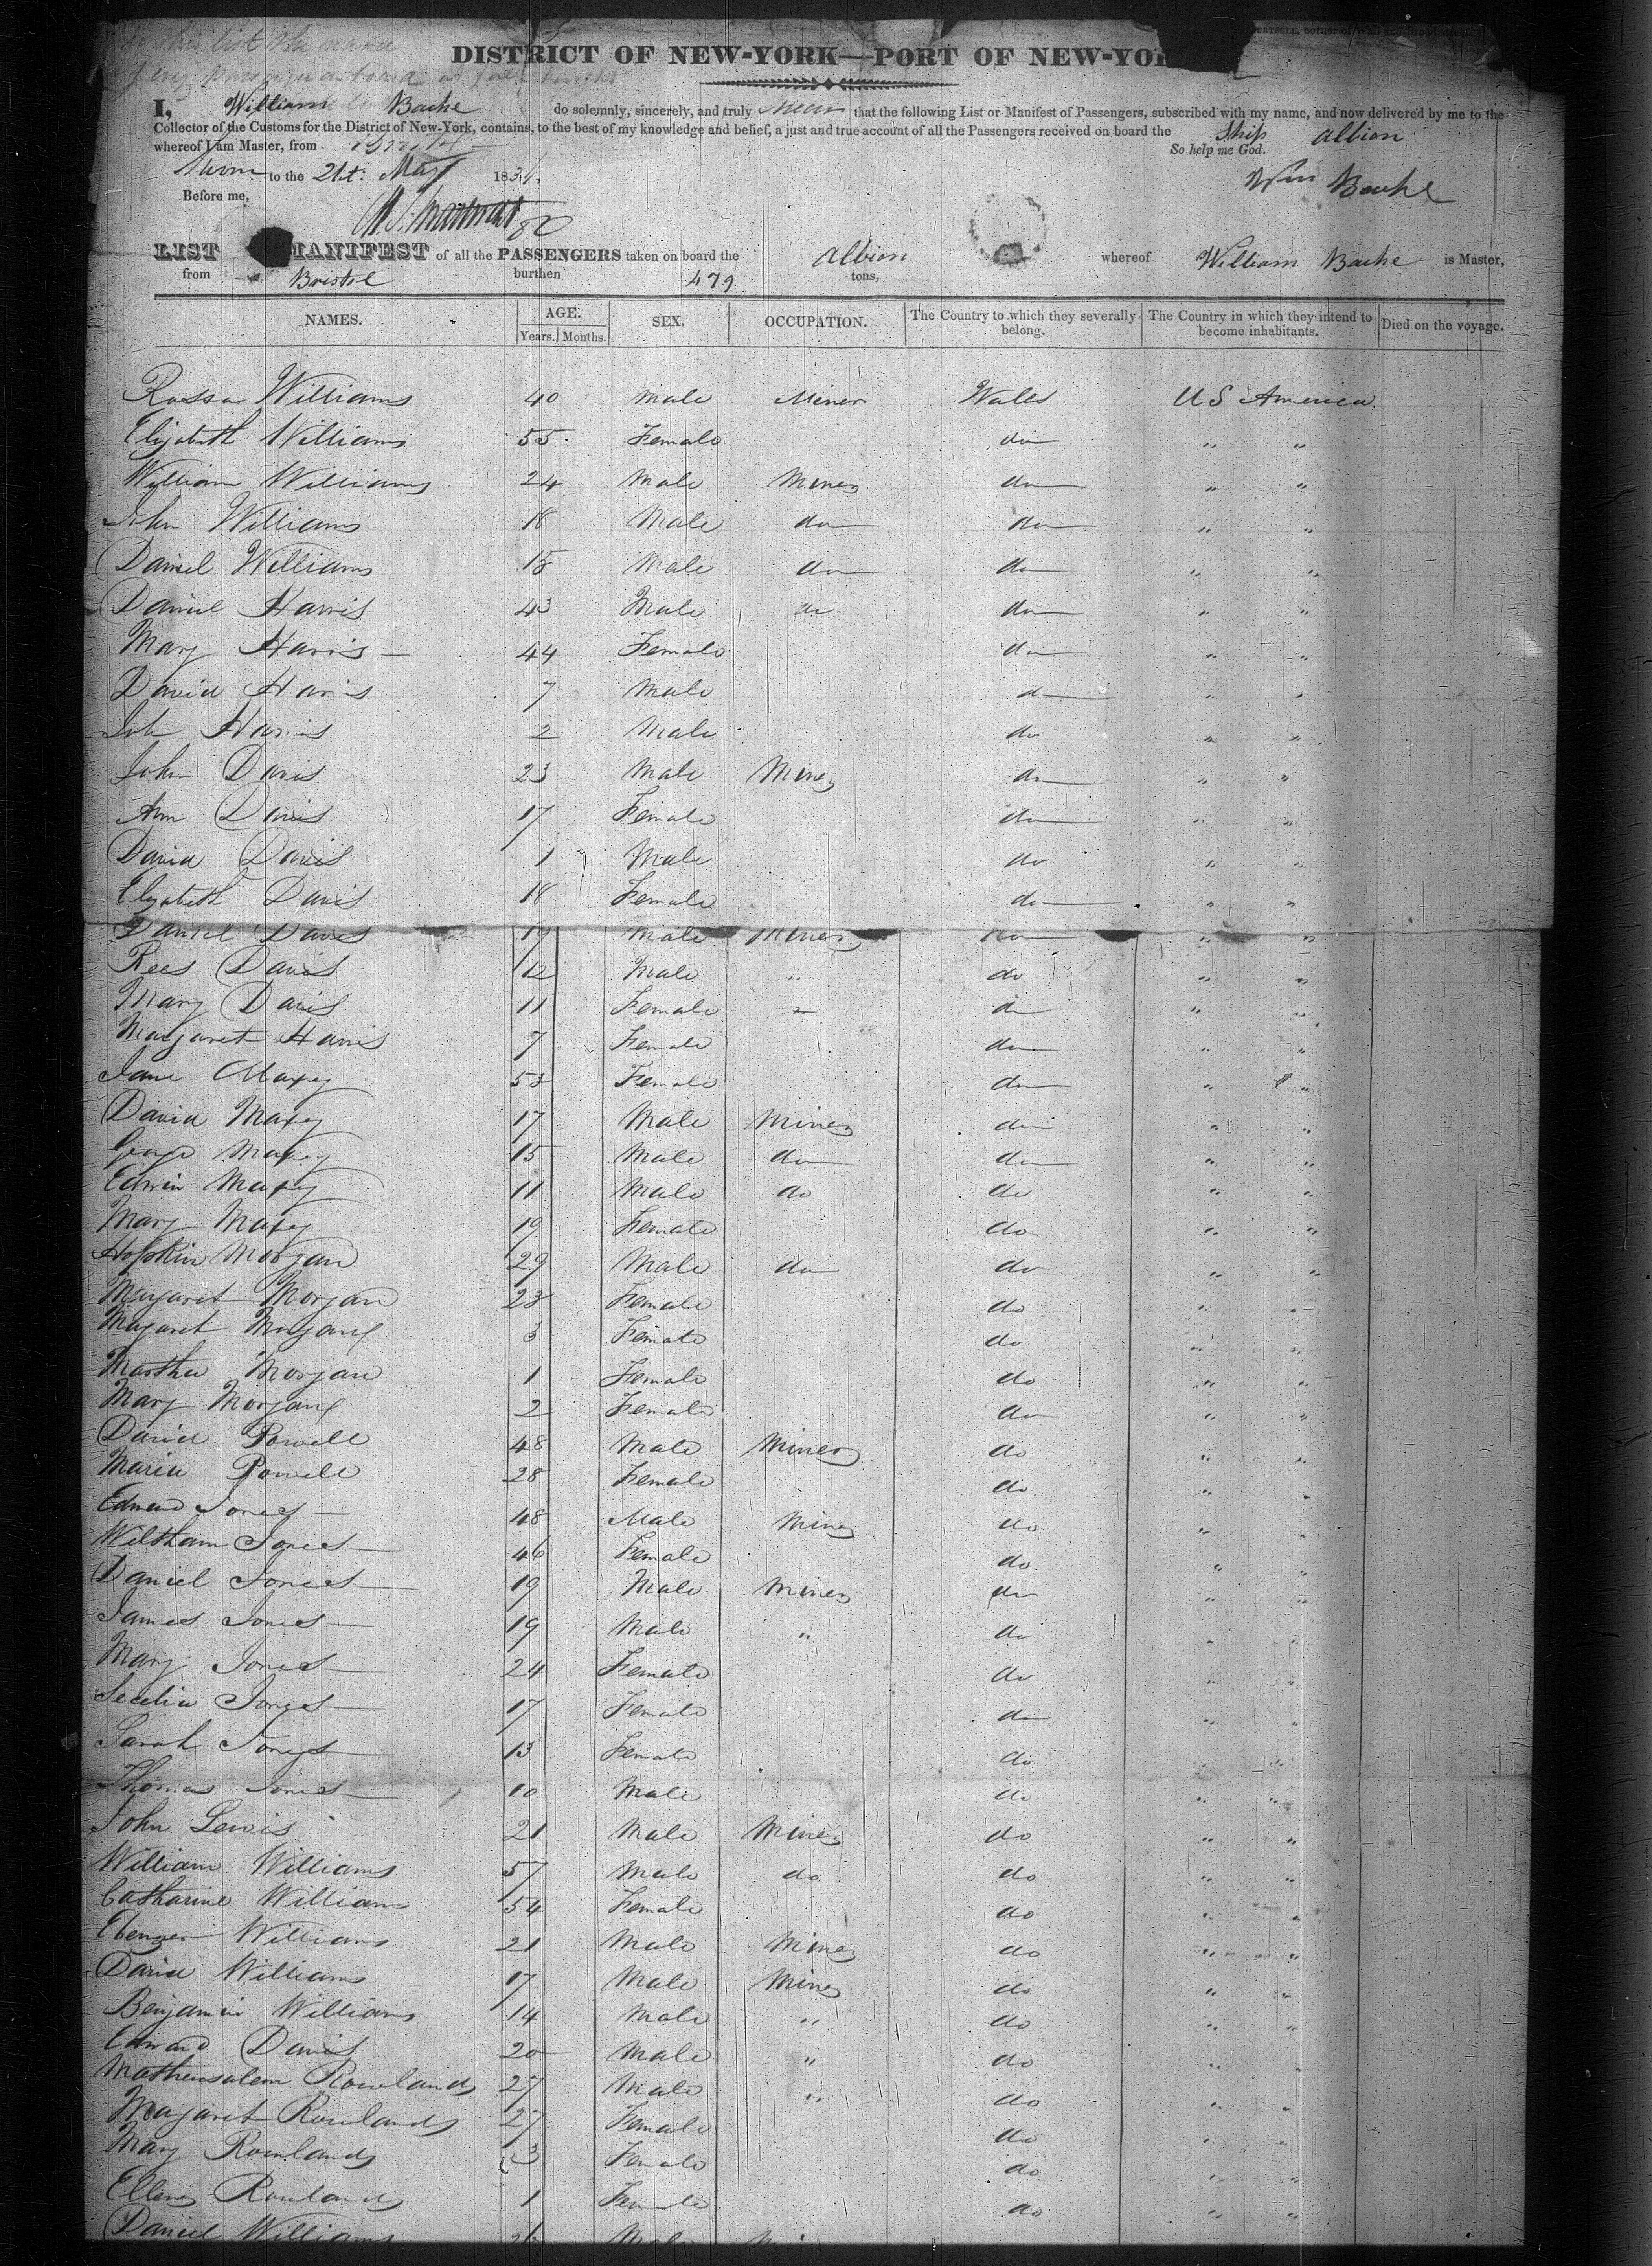 to this list the name
DISTRICT OF NEW-YORK—PORT OF NEW-YOR
I, William Bache do solemnly, sincerely, and truly swear that the following List or Manifest of Passengers, subscribed with my name, and now delivered by me to the
Collector of the Customs for the District of New-York, contains, to the best of my knowledge and belief, a just and true account of all the Passengers received on board the Ship Albion
whereof I am Master, from Bristol So help me God.
Sworn to the 21st May 183 Wm Bache
Before me,
LIST MANIFEST of all the PASSENGERS taken on board the Albion whereof William Bache is Master,
from Bristol burthen 479 tons,
NAMES. AGE. SEX. OCCUPATION. The Country to which they severally belong. The Country in which they intend to become inhabitants. Died on the voyage.
Years. Months.
Williams 40 Male Miner Wales U S America
Elizabeth Williams 55 Female do " "
William Williams 24 Male Miner do " "
John Williams 18 Male do do " "
Daniel Williams 15 Male do do " "
Daniel Harris 43 Male do do " "
Mary Harris 44 Female do " "
David Harris 7 Male do " "
Harris 2 Male do " "
John Davis 23 Male Miner do " "
Ann Davis 17 Female do " "
David Davis 1 Male do " "
Elizabeth Davis 18 Female do " "
Daniel Davis 19 Male Miner do " "
Rees Davis 12 Male " do " "
Mary Davis 11 Female do " "
Margaret Harris 7 Female do " "
Jane Maxey 53 Female do " "
David Maxey 17 Male Miner do " "
George Maxey 15 Male do do " "
Edwin Maxey 11 Male do do " "
Mary Maxey 19 Female do " "
Hopkin Morgan 29 Male do do " "
Margaret Morgan 23 Female do " "
Margaret Morgan 3 Female do " "
Martha Morgan 1 Female do " "
Mary Morgan 2 Female do " "
David Powell 48 Male Miner do " "
Maria Powell 28 Female do " "
Edward Jones 48 Male Miner do " "
Jones 46 Female do " "
Daniel Jones 19 Male Miner do " "
James Jones 19 Male " do " "
Mary Jones 24 Female do " "
Secelia Jones 17 Female do " "
Sarah Jones 13 Female do " "
Thomas Jones 10 Male do " "
John Lewis 21 Male Miner do " "
William Williams 57 Male do do " "
Catharine Williams 54 Female do " "
Ebenezer Williams 21 Male Miner do " "
David Williams 17 Male Miner do " "
Benjamin Williams 14 Male " do " "
Edward Davis 20 Male " do " "
Mathewsalem Rowlands 27 Male " do " "
Margaret Rowlands 27 Female do " "
Mary Rowlands 3 Female do " "
Ellen Rowlands 1 Female do " "
Daniel Williams 26 Male